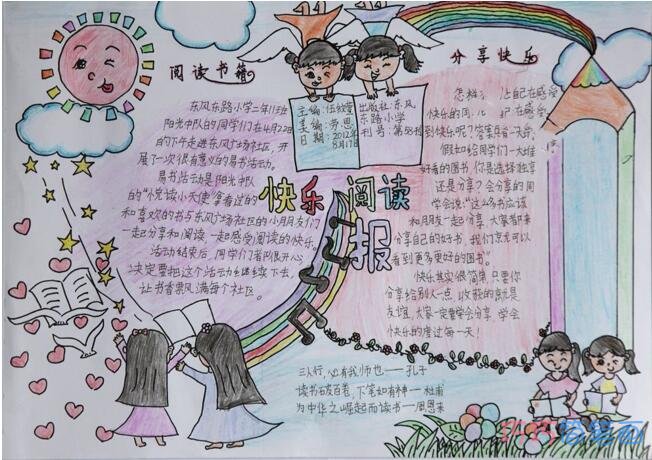 阅读书籍
东风东路小学三年13班
阳光中队的同学们在4月22日
的下午走进东风广场社区,开
展了一次很有意义的易书活动。
易书活动是阳光中队
的“悦读小天使”拿着过的
和喜欢的书与东风广场社区的小朋友们
一起分享和阅读,一起感受阅读的快乐。
活动结束后,同学们着队很开心
决定要把这个活动继续下去,
让书香飘风满每个社区。
主编:伍
美编:劳恩
日期:2012年
8月17日
出版社:东风
东路小学
刊号:第86刊
快乐阅读
报
分享快乐
怎样 让自在感受
快乐的同 在感受
到快乐呢?答案只有一分享。
假如给同学们一大堆
好看的图书,你是选择独享
还是分享?会分享的同
学会说:“这么多书应该
和朋友一起分享,大家都来
分享自己的好书,我们就可以
看到更多更好的图书”。
快乐其实很简单,只要你
分享给别人一点,收获的就是
友谊,大家一定要学会分享,学会
快乐的度过每一天!
三人行,必有我师也——孔子
读书破百卷,下笔如有神——杜甫
为中华之崛起而读书——周恩来